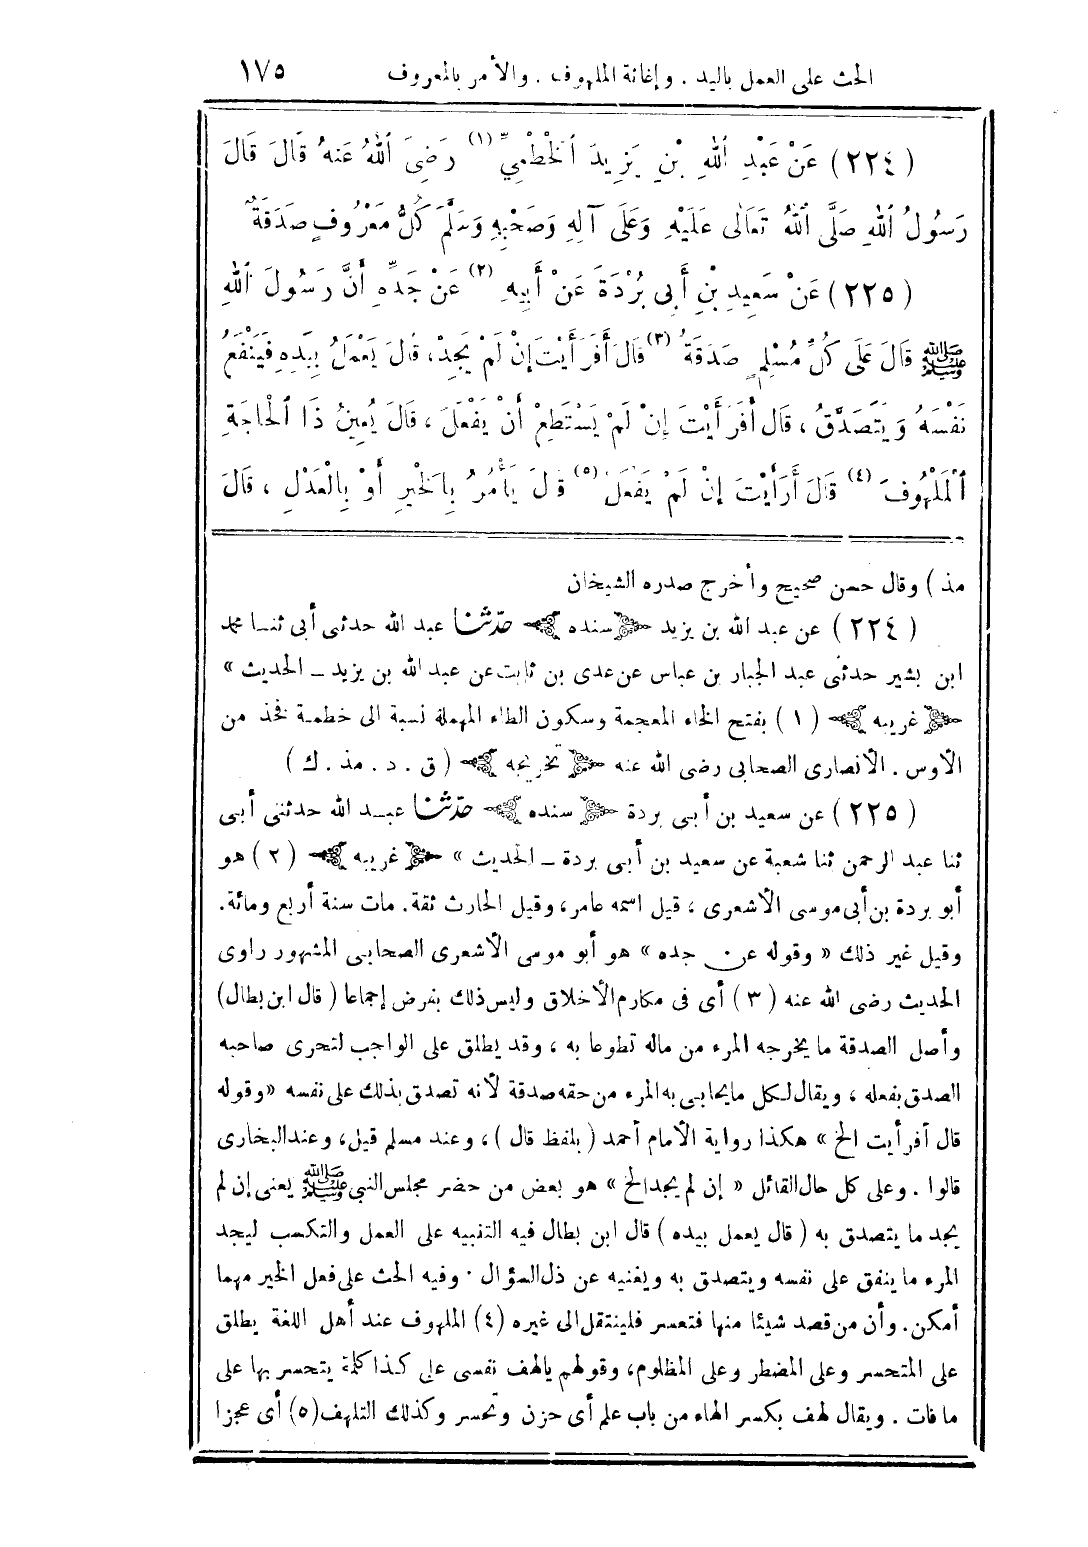 الحث على العمل باليد . وإغاثة الملهوف . والأمر بالمعروف ١٧٥
( ٢٢٤ ) عَنْ عَبْدِ ٱللهِ بْنِ يَزِيدَ ٱلْخَطْمِيِّ (١) رَضِيَ ٱللهُ عَنهُ قَالَ قَالَ
رَسُولُ ٱللهِ صَلَّى ٱللهُ تَعَالَى عَلَيْهِ وَعَلَى آلِهِ وَصَحْبِهِ وَسَلَّمَ كُلُّ مَعْرُوفٍ صَدَقَةٌ
( ٢٢٥ ) عَنْ سَعِيدِ بْنِ أَبِى بُرْدَةَ عَنْ أَبِيهِ (٢) عَنْ جَدِّهِ أَنَّ رَسُولَ ٱللهِ
ﷺ قَالَ عَلَى كُلِّ مُسْلِمٍ صَدَقَةٌ (٣) قَالَ أَفَرَأَيْتَ إِنْ لَمْ يَجِدْ، قَالَ يَعْمَلُ بِيَدِهِ فَيَنْفَعُ
نَفْسَهُ وَيَتَصَدَّقُ ، قَالَ أَفَرَأَيْتَ إِنْ لَمْ يَسْتَطِعْ أَنْ يَفْعَلَ ، قَالَ يُعِينُ ذَا ٱلْحَاجَةِ
ٱلْمَلْهُوفَ (٤) قَالَ أَرَأَيْتَ إِنْ لَمْ يَفْعَلْ (٥) قَالَ يَأْمُرُ بِالْخَيْرِ أَوْ بِالْعَدْلِ ، قَالَ
مذ ) وقال حسن صحيح وأخرج صدره الشيخان
( ٢٢٤ ) عن عبد الله بن يزيد سنده حدّثنا عبد الله حدثى أبى ثنا محمد
ابن بشير حدثنى عبد الجبار بن عباس عن عدى بن ثابت عن عبد الله بن يزيد ـ الحديث »
غريبه ( ١ ) بفتح الخاء المعجمة وسكون الطاء المهملة نسبة الى خطمة فخذ من
الأوس . الأنصارى الصحابى رضى الله عنه تخريجه ( ق . د . مذ . ك )
( ٢٢٥ ) عن سعيد بن أبى بردة سنده حدّثنا عبد الله حدثنى أبى
ثنا عبد الرحمن ثنا شعبة عن سعيد بن أبى بردة ـ الحديث » غريبه ( ٢ ) هو
أبو بردة بن أبى موسى الأشعرى ، قيل اسمه عامر، وقيل الحارث ثقة. مات سنة أربع ومائة.
وقيل غير ذلك « وقوله عن جده » هو أبو موسى الأشعرى الصحابى المشهور راوى
الحديث رضى الله عنه ( ٣ ) أى فى مكارم الأخلاق وليس ذلك بفرض إجماعا ( قال ابن بطال )
وأصل الصدقة ما يخرجه المرء من ماله تطوعا به ، وقد يطلق على الواجب لتحرى صاحبه
الصدق بفعله ، ويقال لكل ما يحابى به المرء من حقه صدقة لأنه تصدق بذلك على نفسه «وقوله
قال أفرأيت الخ » هكذا رواية الأمام أحمد ( بلفظ قال ) ، وعند مسلم قيل، وعند البخارى
قالوا . وعلى كل حال القائل « إن لم يجد الخ » هو بعض من حضر مجلس النبى ﷺ يعنى إن لم
يجد ما يتصدق به ( قال يعمل بيده ) قال ابن بطال فيه التنبيه على العمل والتكسب ليجد
المرء ما ينفق على نفسه ويتصدق به ويغنيه عن ذل السؤال . وفيه الحث على فعل الخير مهما
أمكن. وأن من قصد شيئا منها فتعسر فلينتقل الى غيره (٤) الملهوف عند أهل اللغة يطلق
على المتحسر وعلى المضطر وعلى المظلوم، وقولهم يالهف نفسى على كذا كلمة يتحسر بها على
ما فات . ويقال لهف بكسر الهاء من باب علم أى حزن وتحسر وكذلك التلهف (٥) أى عجزا